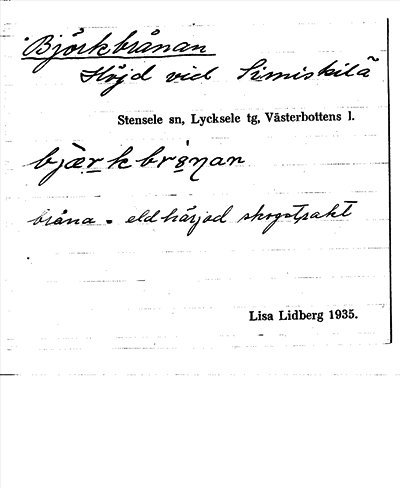 Björkbrånan
Höjd vid Simiskilä
Stensele sn, Lycksele tg, Västerbottens l.
bjæ̱rkbrånan
bråna - eldhärjad skogstrakt
Lisa Lidberg 1935.